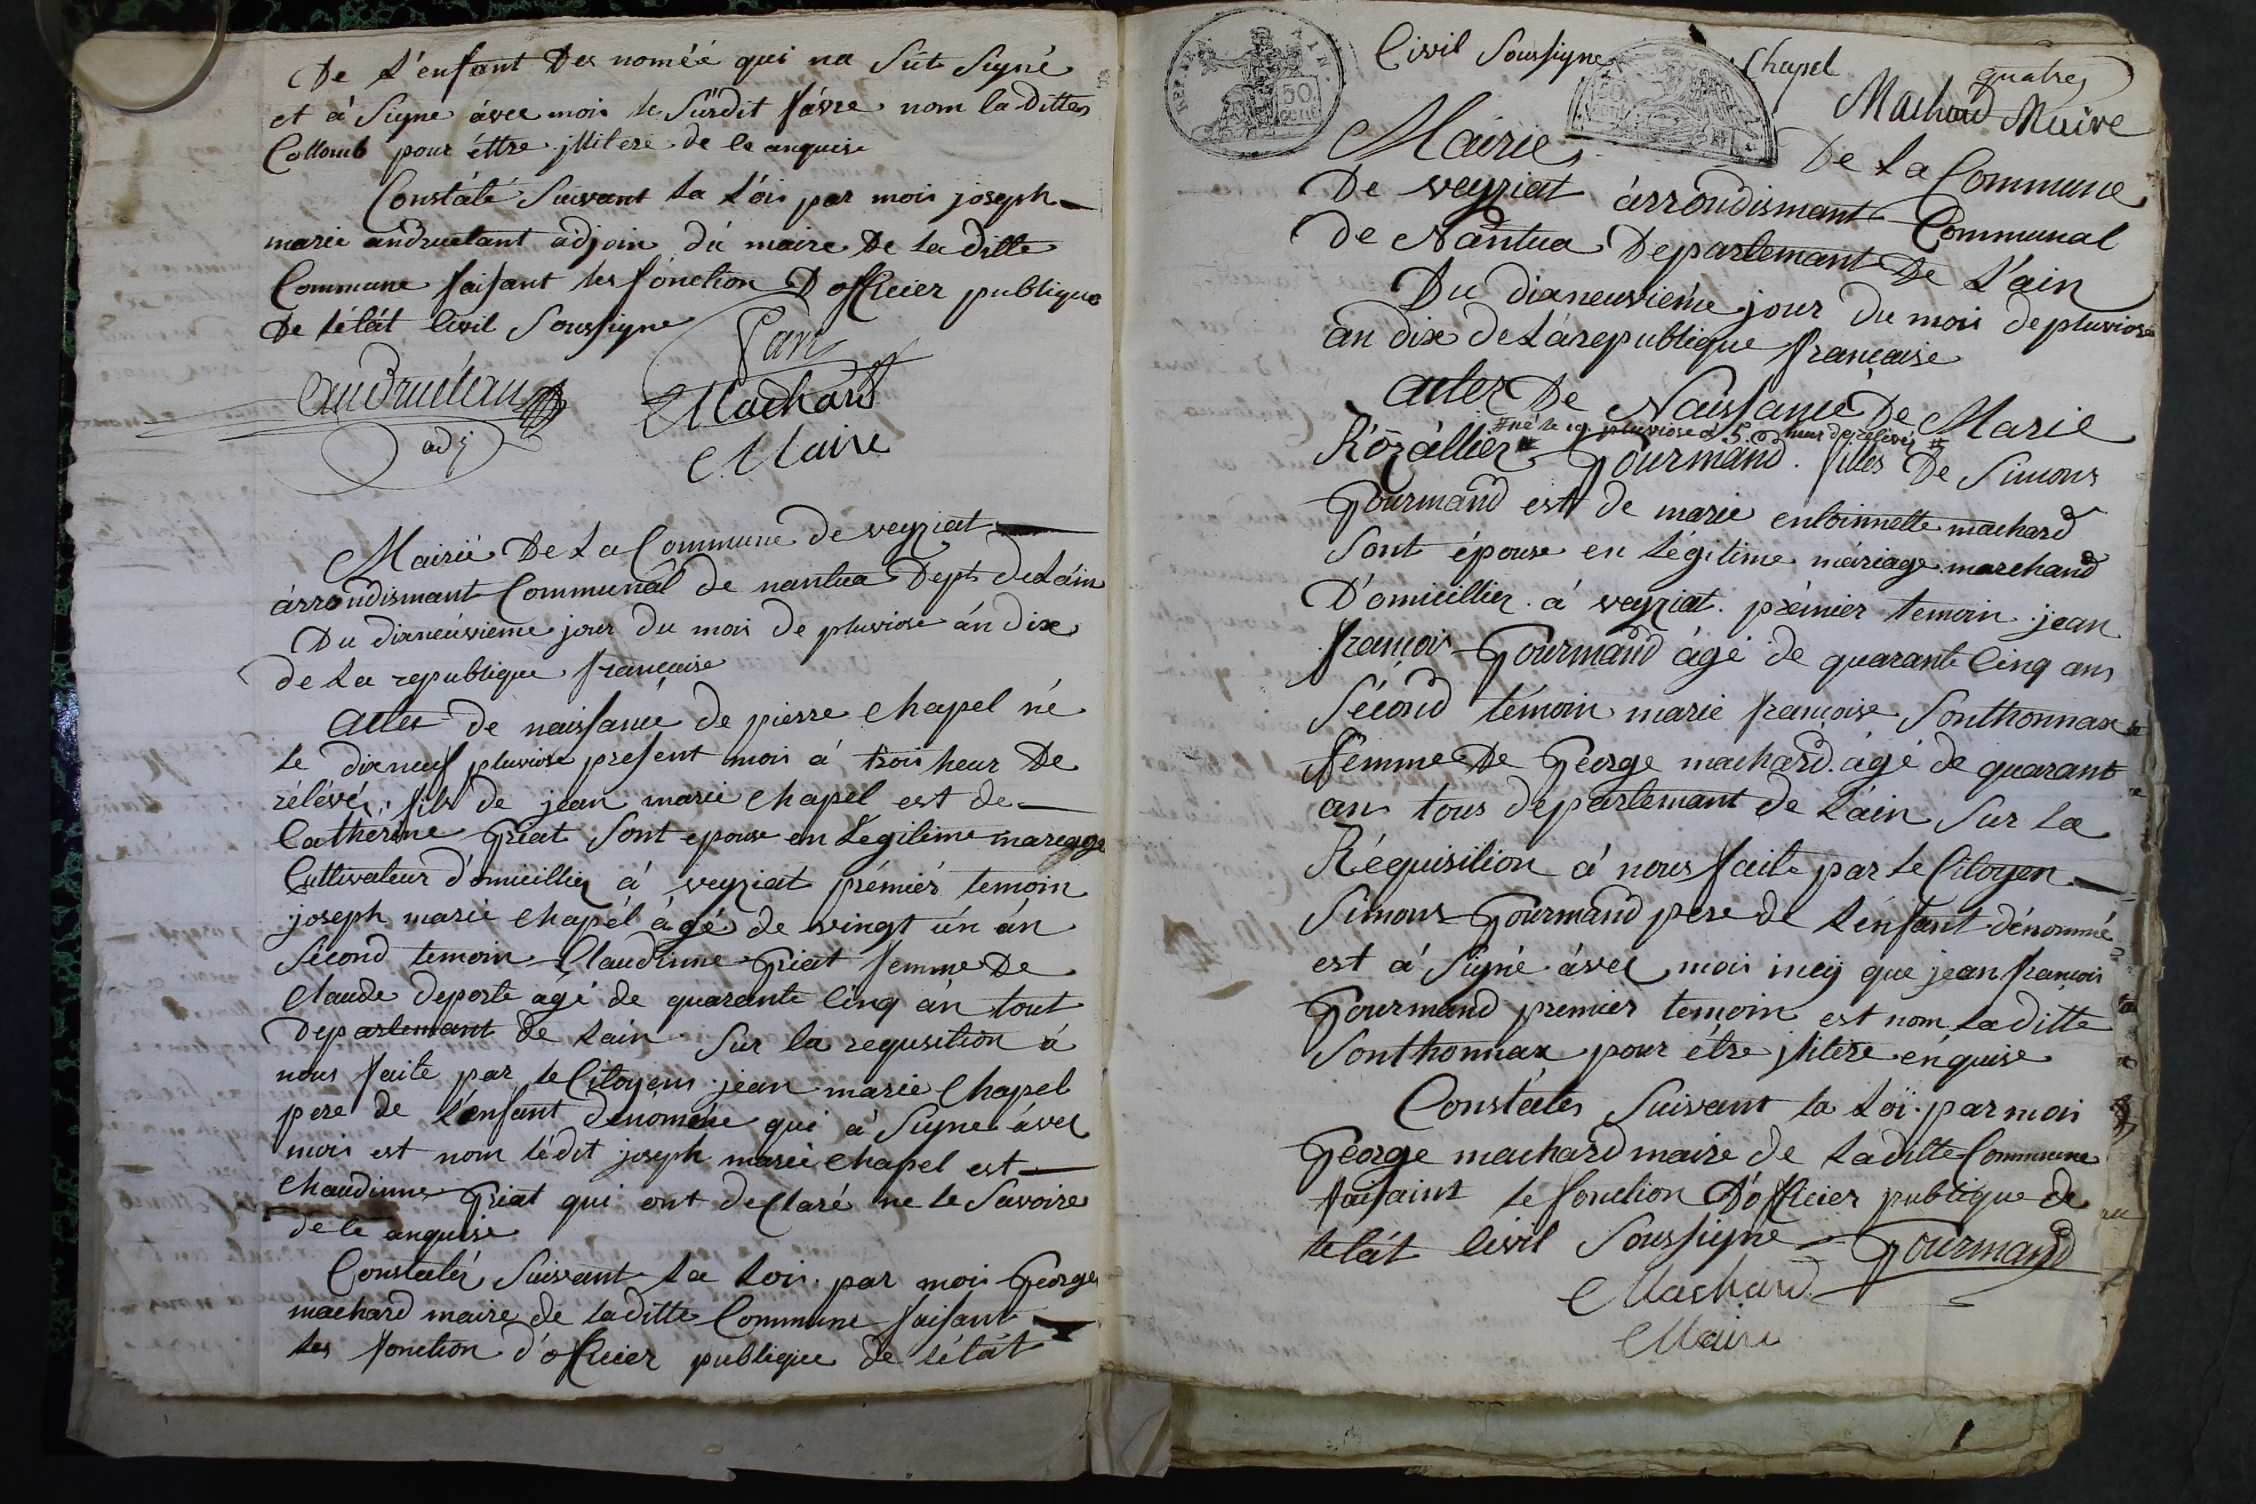 De L'enfant Des noméé qui na Sut Signé
et à Signe àvec mois le Sürdit favre nom la ditte
Collomb pour éttre jlliteré de le anquise
Constáté Suivant La Lóis par mois joseph
marie andruetant adjoin dù maire De La ditte
Commune faisant les fónction D'officier publique
De L'étàt Civil Soussigne
favre
andruétan
Machard
adj
Maire
Mairié De La Commune de veyziat
àrrondismant Communâl de nantua Dept. de L'áin
Du dixneuvieme jour du mois de pluviose án dix
de La republique francaise
actes de naissance de pierre Chapel né
le dixneuf pluviose present mois á trois heur De
rélévér, fils de jean marie Chapel est de
Cathérine Griat Sont epouse en Légitime mariage
Cultivateur d'omicillier à veyziat prémiér temoin
joseph marie Chapél ágé de vingt ún án
Sécond temoin Claudinne Griat femme De
Claude deporte agé de quarante Cinq àn tout
departemant de Lain Sur la requsition à
nous faite par le Citoyens jean marie Chapel
pere de L'enfant denoméé qui à Signe àvec
mois est nom lédit joseph marie Chapel est
Chaudinne Griat qui ont declaré ne le Savoire
de le anquise
Constatér Suivant La Lois par mois George
machard maire de laditte Commune faisant
les fonction d'officier publique de l'étàt
Civil Soussigne
Chapel
quatre
Machard Maire
50
Mairie De La Commune
De veyziat àrróndismant Communal
de Nantua Departemant De L'ain
Du dixneuvieme jour Du mois de pluviose
an dix de Lá republique française
actes De Naissance De Marie
# né le 19. pluviose à 5. heur de rélévér #
Rózállier # Gourmand filles De Simons
Gourmand est de marie entoinnette machard
Sont épouse en Légitime máriage marchand
D'omicillier à veyziat. prémier temoin jean
françois Gourmand ágé de quarante Cinq ans
Sécond témoin marie françoise Sonthonnax
femme De George machard. ágé de quarant
an tous départemant de L'áin Sur La
Réquisition á nous faite par le Citoyen
Simons Gourmand pere de L'énfant dénommé
est à Signé àvec mois incy que jean françois
Gourmand premier temoin est nom La ditte
Sonthonnax pour étre jlitére enquise
Constáter Suivant la Loï par mois
George machard maire de La ditte Commune
faisaint le fonction D'officier publique de
létàt Civil Soussigne
Gourmand
Machard
Maire